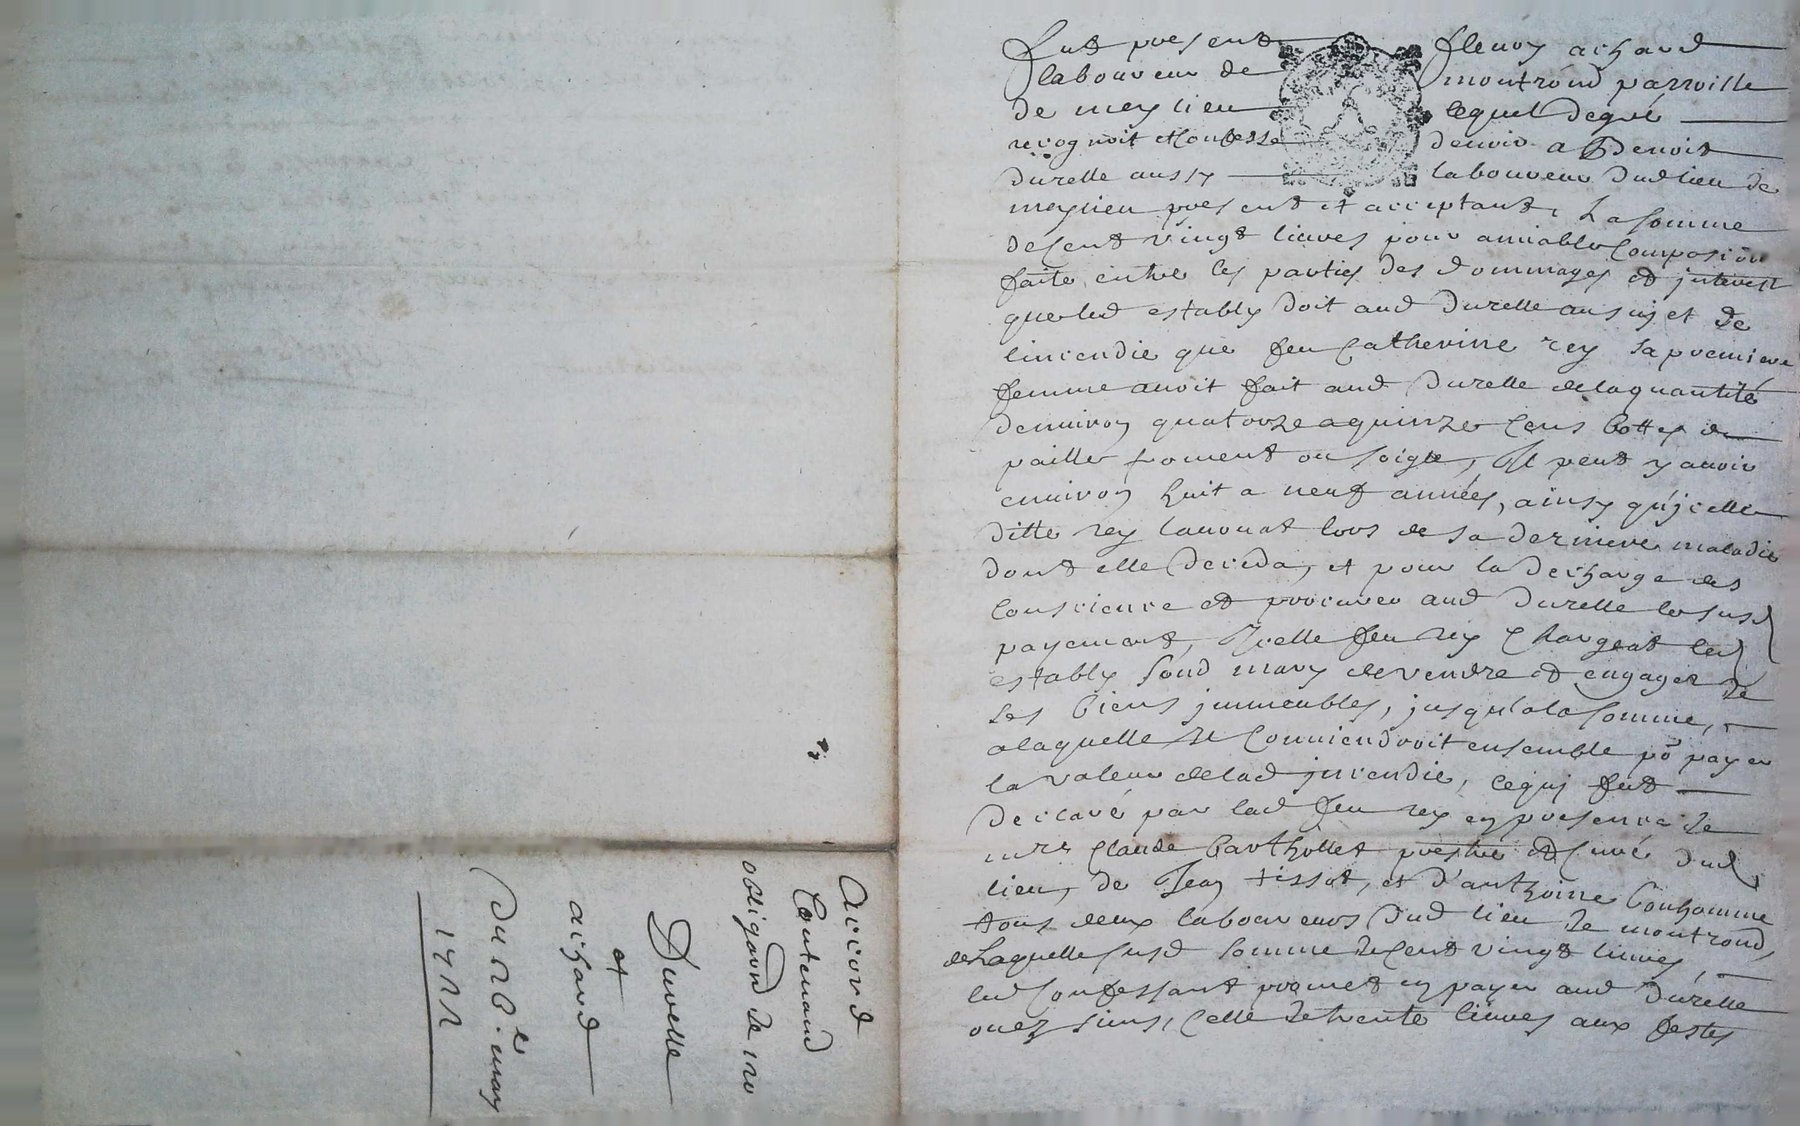 fut present fleury achard
laboureur de montrond parroisse
de meylieu lequel degré
recognoit et confesse devoir a Benoit
durelle aussy laboureur dud lieu de
meylieu present et acceptant, La somme
de Cent vingt livres pour amiable Composiõn
faite entre les parties des dommages et jnterest
que led estably doit aud durelle au sujet de
lincendie que feu Catherine rey sa premiere
femme avoit fait aud durelle de la quantité
denviron quatorze a quinze Cens bottes de
paille froment ou soigle, Il peut y avoir
environ huit a neuf années, ainsy qu'jcelle
ditte rey lavouat lors de sa derniere maladie
dont elle deceda, et pour la decharge de sa
Conscience et procurer aud durelle le susd
payement, Icelle feu rey Chargeat led
estably sond mary de vendre et engager de
ses biens jmmeubles, jusqu'a la somme,
a laquelle Il Conviendroit ensemble po payer
la valeur de lad jncendie, ce quj fut
declaré par lad feu rey en presence de
mre Claude barthollet prestre et Curé dud
lieu, de Jean tissot, et d'anthoine bonhomme
tous deux laboureurs dud lieu de montrond,
de Laquelle susd somme de Cent vingt livres,
led Confessant promet en payer aud durelle
ou ez siens, Celle de trente livres aux festes
accord
Contenand
obligaõn de 120
Durelle
et
achard
Du 28.e may
1722